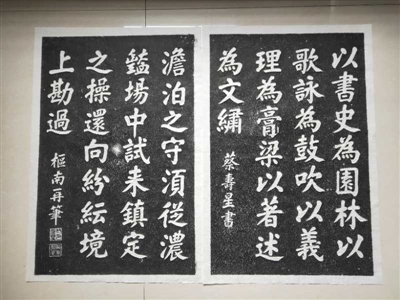 以書史為園林以
歌詠為鼓吹以義
理為膏梁以著述
為文繡 蔡壽星書
澹泊之守湏從濃
豔場中試来鎮定
之操還向紛紜境
上勘過 樞南再筆